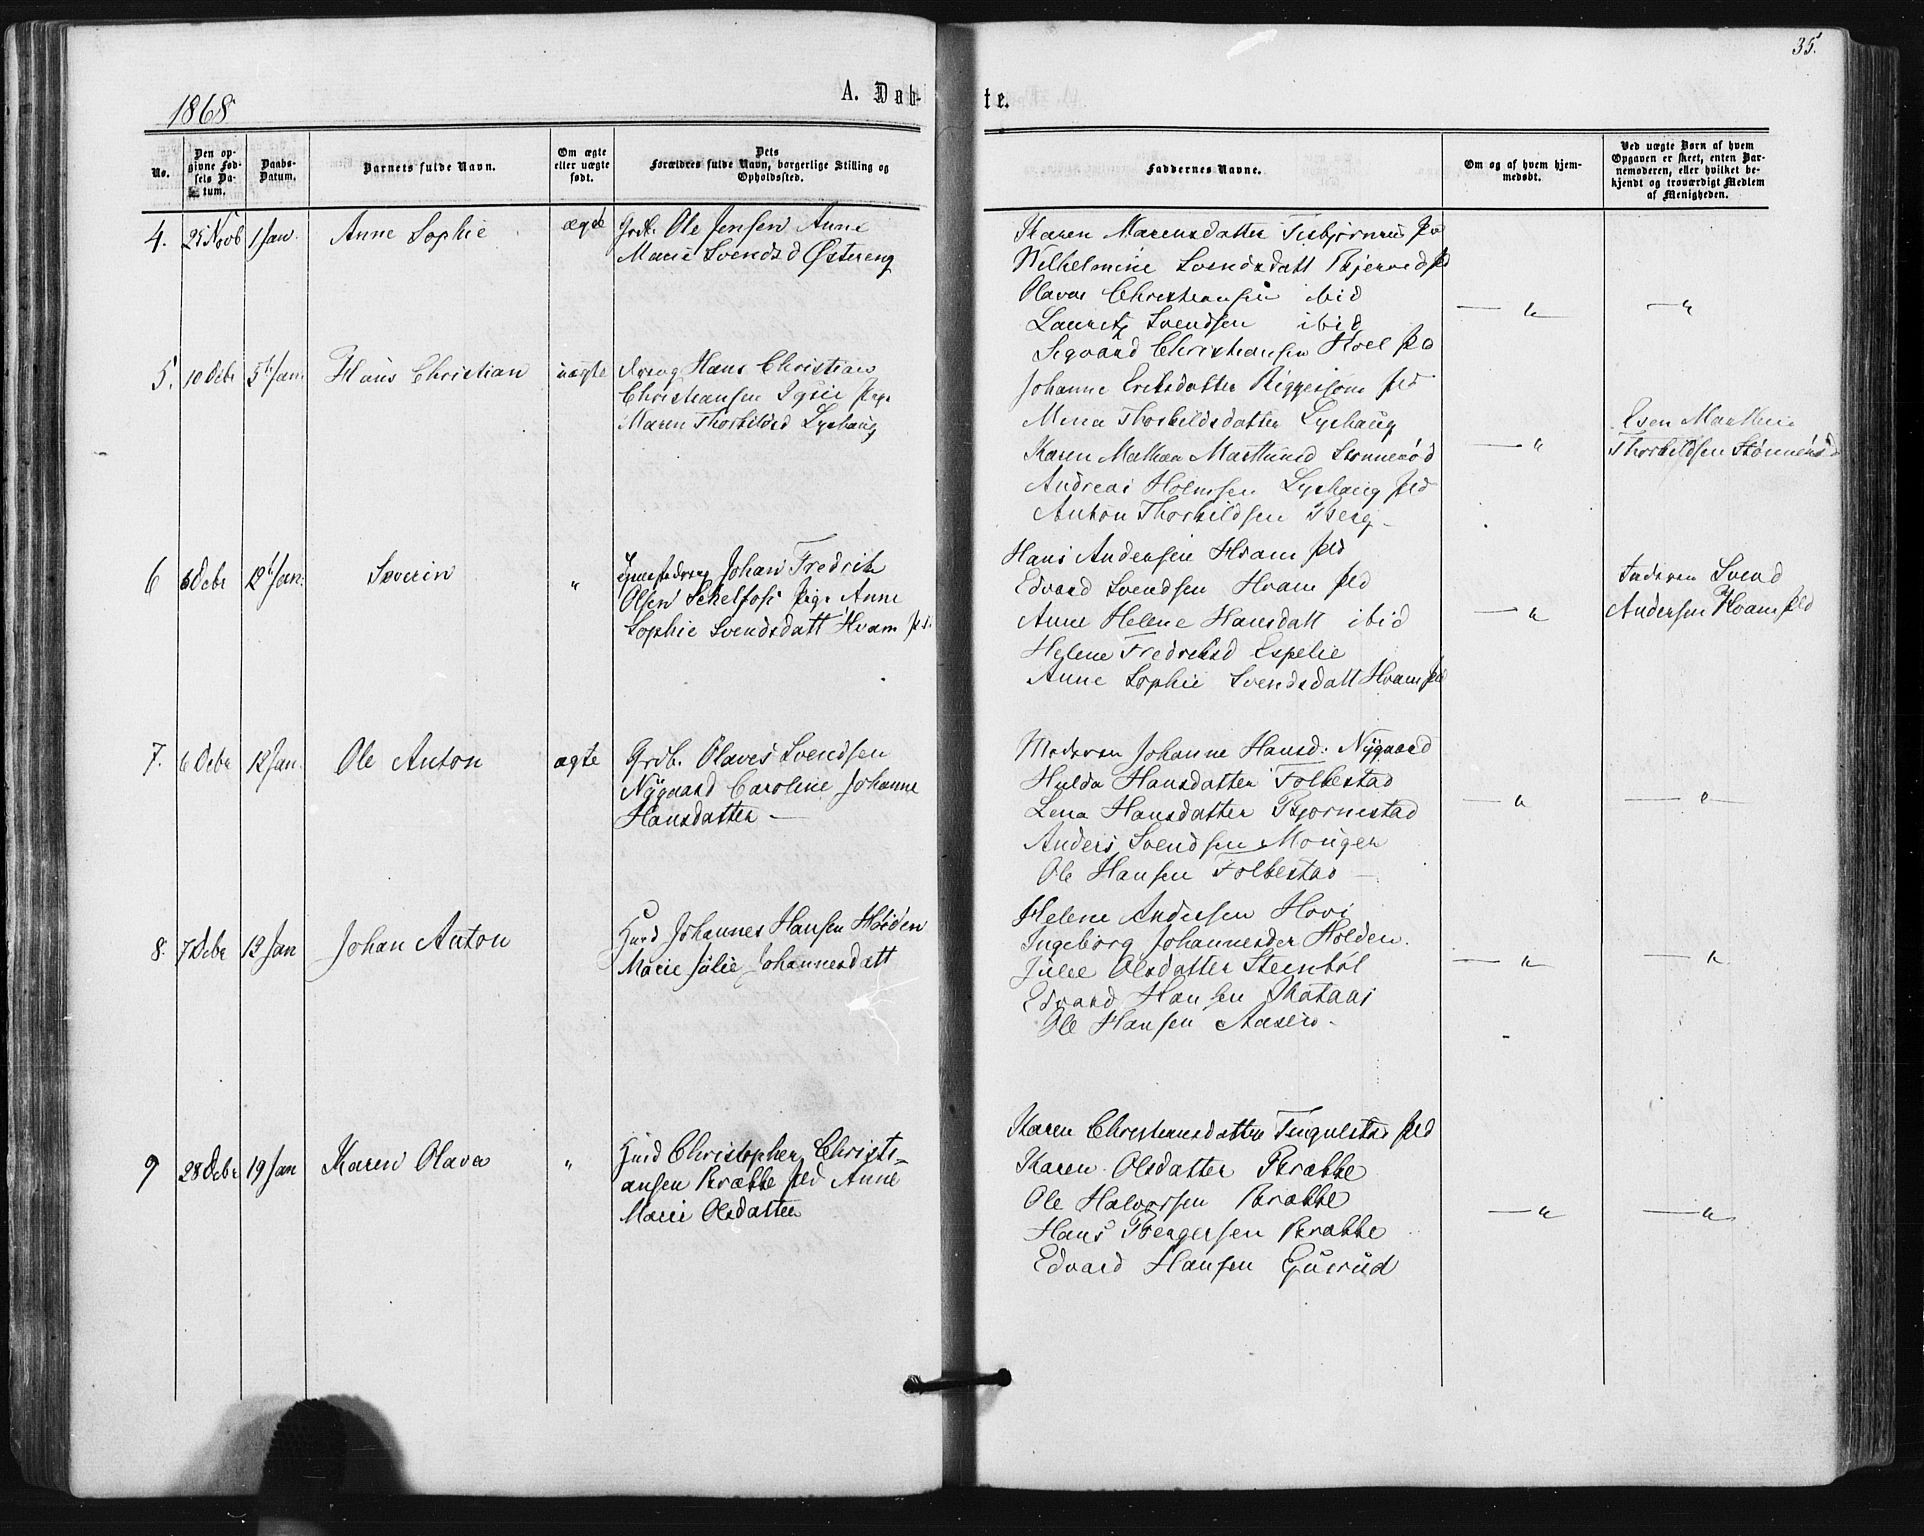 35.
1868
A. Døb-
te.
No.
Den op-
givne Fød-
sels Da-
tum.
Daabs-
Datum.
Barnets fulde Navn.
Om ægte
eller uægte
født.
Dets
Forældres fulde Navn, borgerlige Stilling og
Opholdssted.
Faddernes Navne.
Om og af hvem hjem-
medøbt.
Ved uægte Børn af hvem
Opgaven er skeet, enten Bar-
nemoderen, eller hvilket be-
kjendt og troværdigt Medlem
af Menigheden.
4. 25 Novb 1 Jan. Anne Sophie ægte Grdb. Ole Jensen Anne
Marie Svendsd Østereng
Karen Marensdatter
Wilhelmine Svendsdatt Bjerved
Olava Christiansen ibid
Lauritz Svendsen ibid
Segvard Christiansen Hoel
— " — "
5. 10 Debr 5te Jan. Hans Christian uægte Dreng Hans Christian
Christiansen Pige
Maren Thorkildsd Lyshaug
Johanne Eriksdatter
Mina Thorkildsdatter Lyshaug
Karen Mathea
Andreas Holmsen Lyshaug
Anton Thorkildsen Berg
— "
Thorkildsen
6 6 Debr 12te Jan. Severin " Johan Fredrik
Olsen Pige Anne
Sophie Svendsdatt Hvam
Hans Andersen Hvam
Edvard Svendsen Hvam
Anne Helene Hansdatt ibid
Helene Fredriksd Espelie
Anne Sophie Svendsdatt Hvam
— "
Svend
Andersen Hvam
7. 6 Debr 12 Jan. Ole Anton ægte Grdb. Olaves Svendsen
Nÿgaard Caroline Johanne
Hansdatter —
Moderen Johanne Hansd. Nÿgaard
Hulda Hansdatter Folkestad
Lena Hansdatter Bjørnestad
Anders Svendsen
Ole Hansen Folkestad —
— " — "
8. 7 Debr 12 Jan Johan Anton Husd Johannes Hansen Holden
Marie Julie Johannesdatt
Helene Andersen Hovi
Ingeborg Johannesder Holden.
Julie Olsdatter
Edvard Hansen
Ole Hansen
— " — "
9 28 Debr 19 Jan Karen Olava " Husd Christopher Christi-
ansen Brække Anne
Marie Olsdatter
Karen Christiansdatter
Karen Olsdatter Brække
Ole Halvorsen Brække
Hans Brække
Edvard Hansen
— " — "